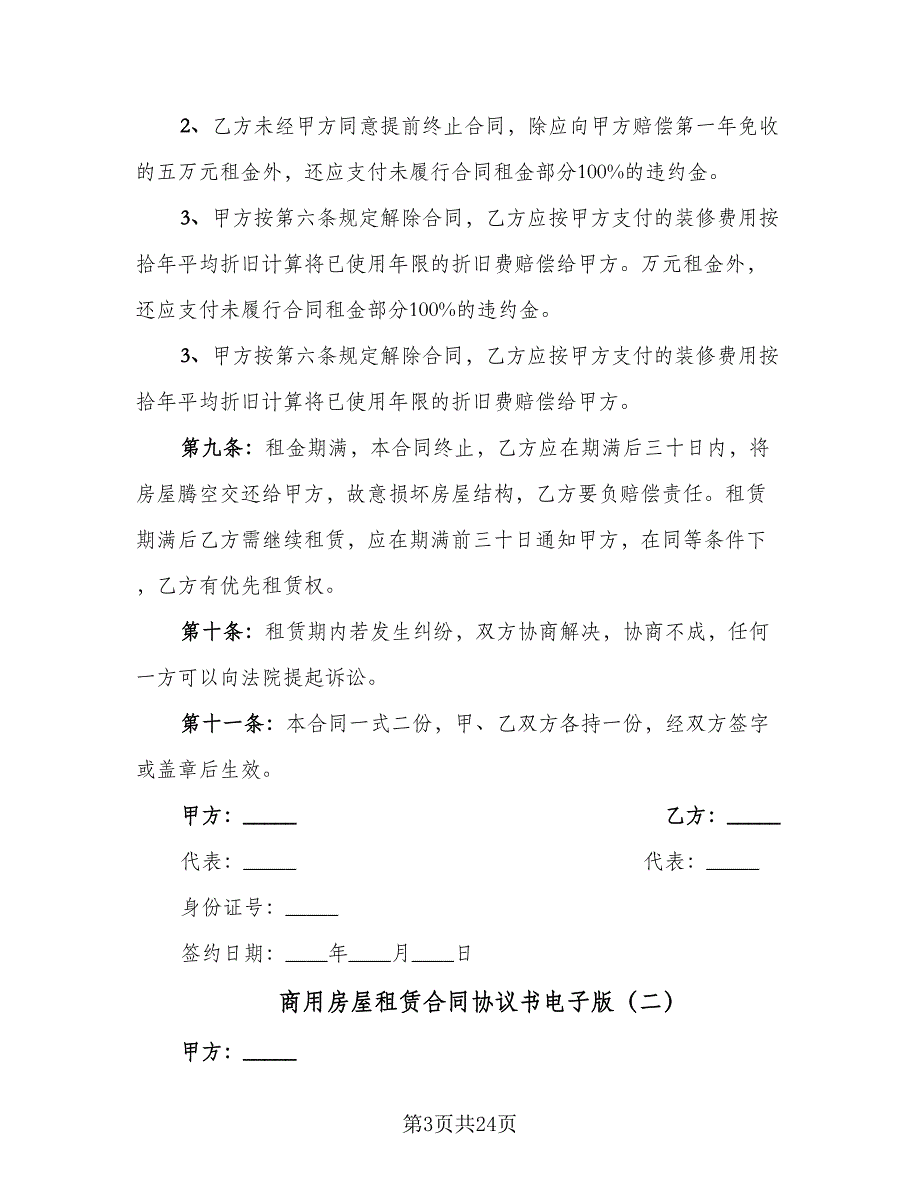 2、乙方未经甲方同意提前终止合同，除应向甲方赔偿第一年免收
的五万元租金外，还应支付未履行合同租金部分100%的违约金。
3、甲方按第六条规定解除合同，乙方应按甲方支付的装修费用按
拾年平均折旧计算将已使用年限的折旧费赔偿给甲方。万元租金外，
还应支付未履行合同租金部分100%的违约金。
3、甲方按第六条规定解除合同，乙方应按甲方支付的装修费用按
拾年平均折旧计算将已使用年限的折旧费赔偿给甲方。
第九条：租金期满，本合同终止，乙方应在期满后三十日内，将
房屋腾空交还给甲方，故意损坏房屋结构，乙方要负赔偿责任。租赁
期满后乙方需继续租赁，应在期满前三十日通知甲方，在同等条件下
，乙方有优先租赁权。
第十条：租赁期内若发生纠纷，双方协商解决，协商不成，任何
一方可以向法院提起诉讼。
第十一条：本合同一式二份，甲、乙双方各持一份，经双方签字
或盖章后生效。
甲方：_____ 乙方：_____
代表：_____ 代表：_____
身份证号：_____
签约日期：____年____月____日
商用房屋租赁合同协议书电子版（二）
甲方：_____
第3页共24页